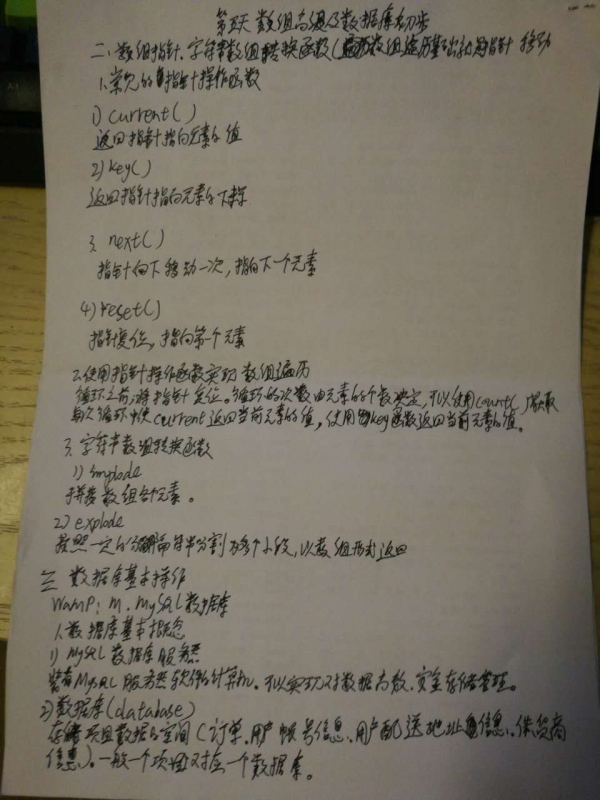 第五天 数组高级及数据库初步
二、数组指针、字符串数组转换函数(数组遍历基础知识指针移动
1.常见的指针操作函数
1) current()
返回指针指向元素的值
2) key()
返回指针指向元素的下标
3. next()
指针向下移动一次,指向下一个元素
4) reset()
指针复位,指向第一个元素
2.使用指针操作函数实现数组遍历
循环之前,将指针复位。循环的次数由元素的个数决定,可以使用count()获取
每次循环中使current返回当前元素的值,使用key函数返回当前元素的值。
3.字符串数组转换函数
1) implode
拼接数组各个元素。
2) explode
按照一定的分隔符串分割为多个小段,以数组形式返回
三 数据库基本操作
WamP: m. MySQL数据库
1.数据库基本概念
1) MySQL数据库服务器
装有MySQL服务器软件的计算机。可以实现对数据高效、安全存储管理。
2) 数据库(database)
存储项目数据的空间(订单、用户帐号信息、用户配送地址信息、供货商
信息)。一般一个项目对应一个数据库。